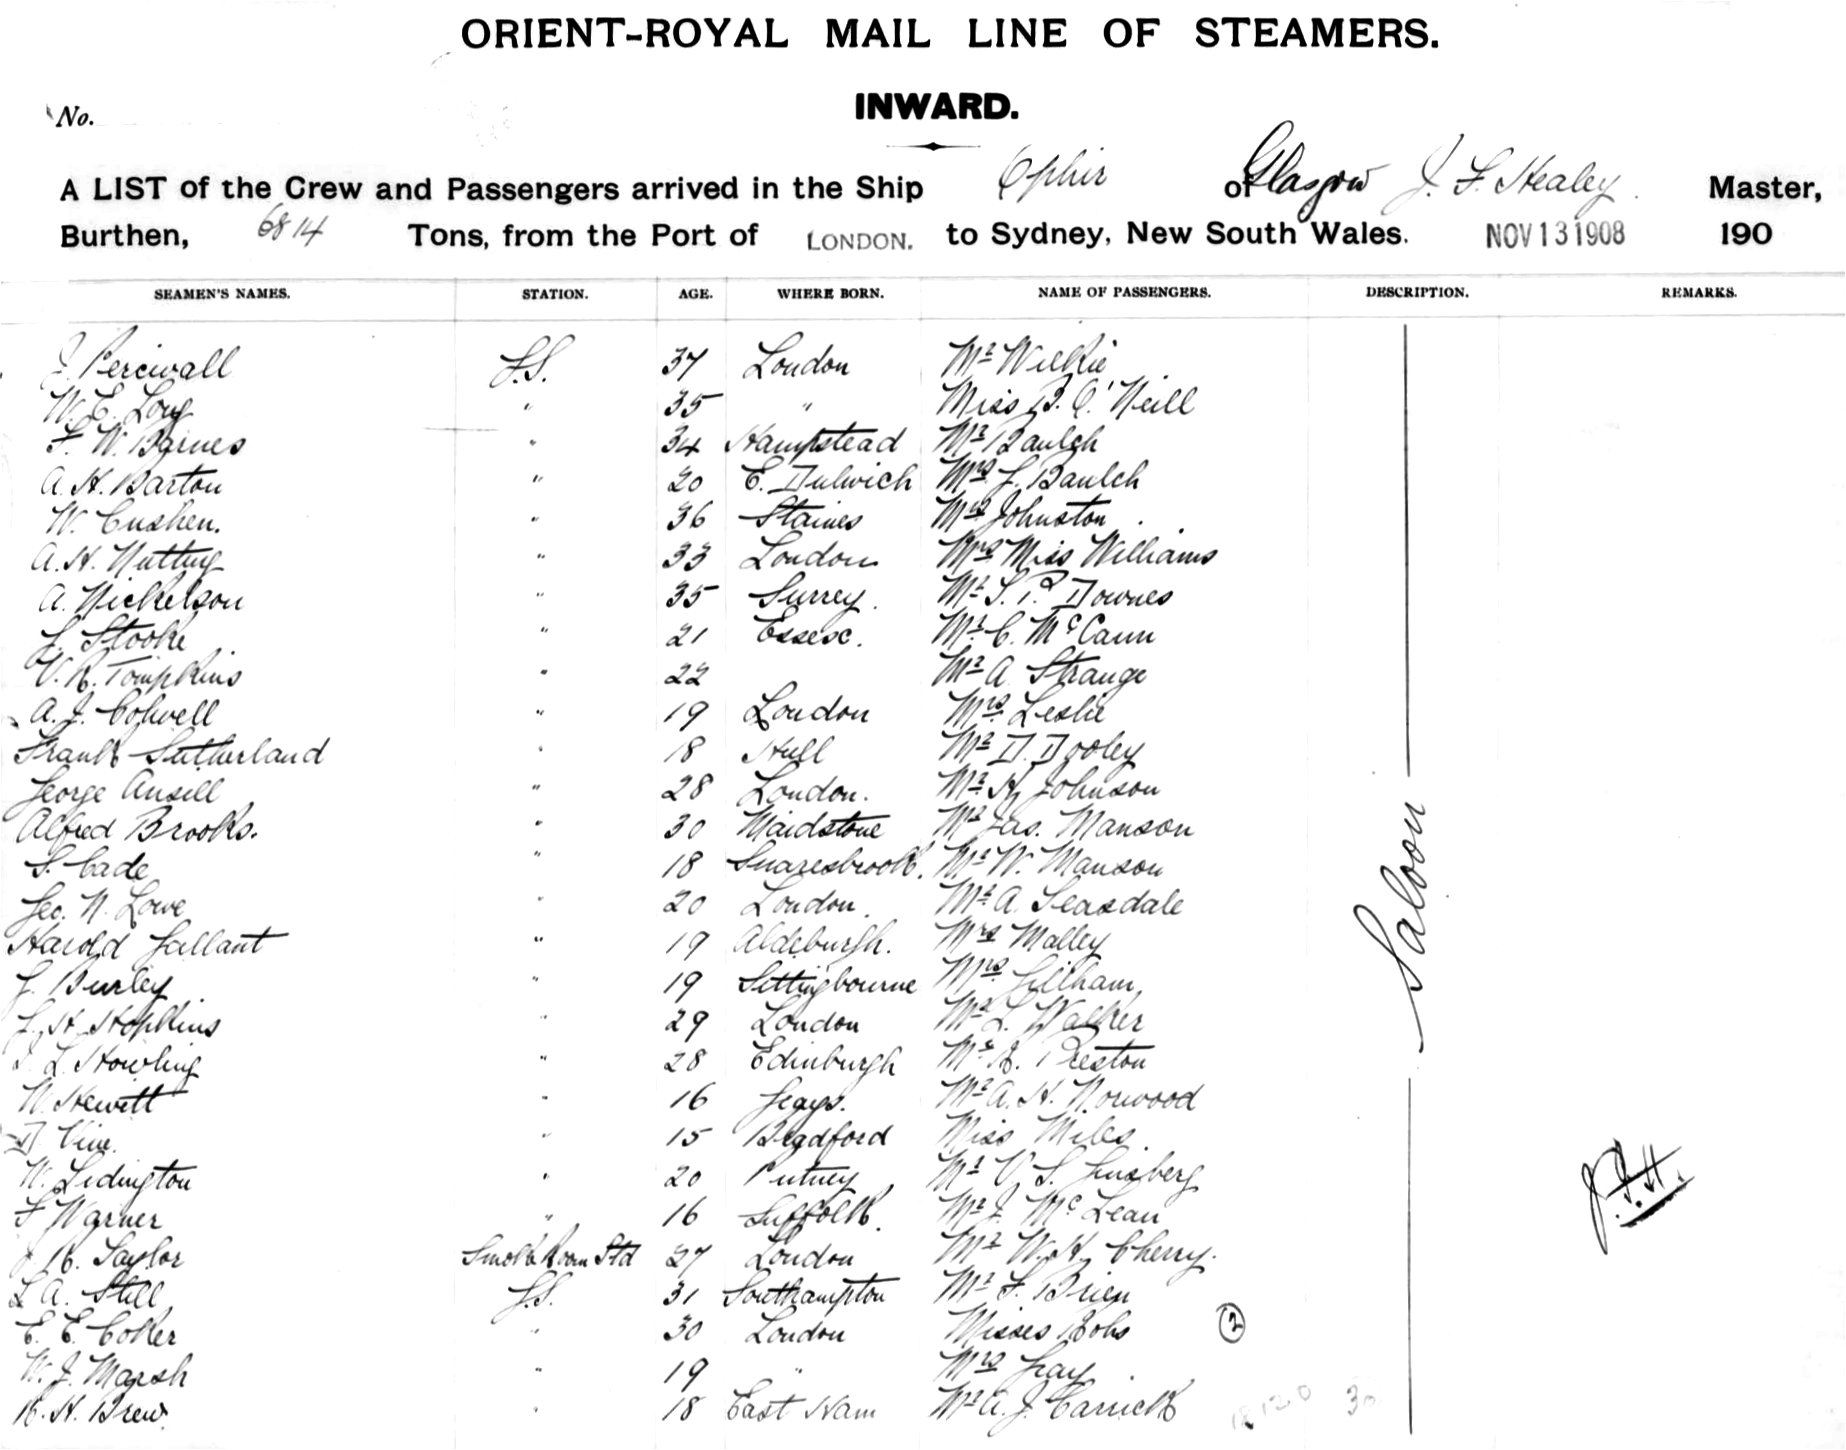 ORIENT-ROYAL MAIL LINE OF STEAMERS.
INWARD.
No.
A LIST of the Crew and Passengers arrived in the Ship Ophir of Glasgow J. F. Healey. Master,
Burthen, 6814 Tons, from the Port of LONDON. to Sydney, New South Wales. NOV 13 1908 190
SEAMEN'S NAMES. STATION. AGE. WHERE BORN. NAME OF PASSENGERS. DESCRIPTION. REMARKS.
J. Percivall 37 London Mr Wilkie
W. E. Long " 35 " Miss B. O'Neill
F. W. Barnes " 34 Hampstead Mr Baulch
A. H. Barton " 20 E. Dulwich Mrs Baulch
W. Cushen. " 36 Staines Mrs Johnston
A. H. Nutting " 33 London Mrs Miss Williams
A. Nickelson " 35 Surrey. Mr S. P. Downes
Stooke " 21 Essex. Mr C. McCann
V. R. Tompkins " 22 Mr A. Strange
A. J. Colwell " 19 London Mrs Leslie
Frank Sutherland " 18 Hull Mr D. Dooley
George Ansell " 28 London. Mr H. Johnson
Alfred Brooks. " 30 Maidstone Mr Jas. Manson
S. Cade " 18 Snaresbrook. Mr W. Manson
Geo. N. Lowe " 20 London. Mr A. Teasdale
Harold Gallant " 19 Aldeburgh. Mrs Malley
J. Burley " 19 Sittingbourne Mrs Gillham,
H. Hopkins " 29 London Mr L. Walker
L. Howling " 28 Edinburgh Mr R. Preston
W. Hewitt " 16 Grays. Mr A. H. Norwood
D. Vine. " 15 Bradford Miss Miles.
W. Lidington " 20 Putney Mr V. S. Ginsberg
F. Warner " 16 Suffolk. Mr J. McLean
R. Taylor Smoke Room Std 27 London Mr W. H. Cherry.
L. A. Still 31 Southampton Mr F. Brien
E. E. Coker " 30 London Misses 2
W. J. Marsh " 19 " Mrs Gray
R. H. Brew. " 18 East Ham Mr A. J. Carrick
Saloon
J.F.H.